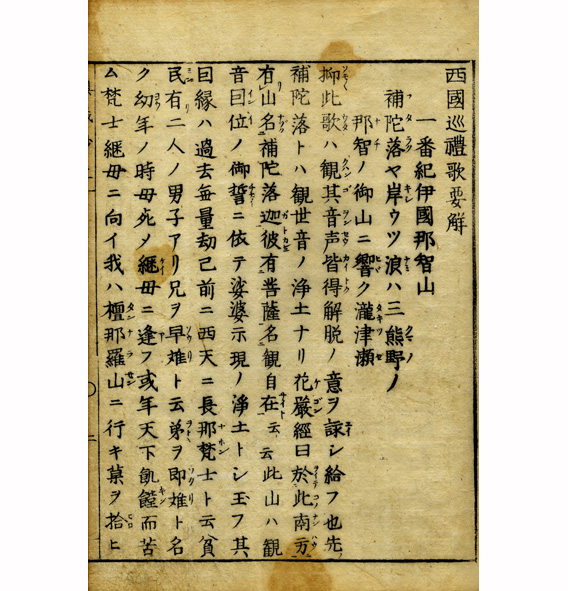 西國巡禮歌要解
一番紀伊國那智山
補陀落ヤ岸ウツ浪ハ三熊野ノ
那智ノ御山ニ響ク瀧津瀬
抑此歌ハ観其音声皆得解脱ノ意ヲ詠シ給フ也先
補陀落トハ観世音ノ浄土ナリ花厳經曰於此南方
有山名補陀落迦彼有菩薩名観自在云云此山ハ観
音曰位ノ御誓ニ依テ娑婆示現ノ浄土トシ玉フ其
因縁ハ過去無量劫已前ニ西天ニ長那梵士ト云貧
民有二人ノ男子アリ兄ヲ早雉ト云弟ヲ即雉ト名
ク幼年ノ時母死メ継母ニ逢フ或年天下飢饉而苦
ム梵士継母ニ向イ我ハ檀那羅山ニ行キ菓ヲ拾ヒ